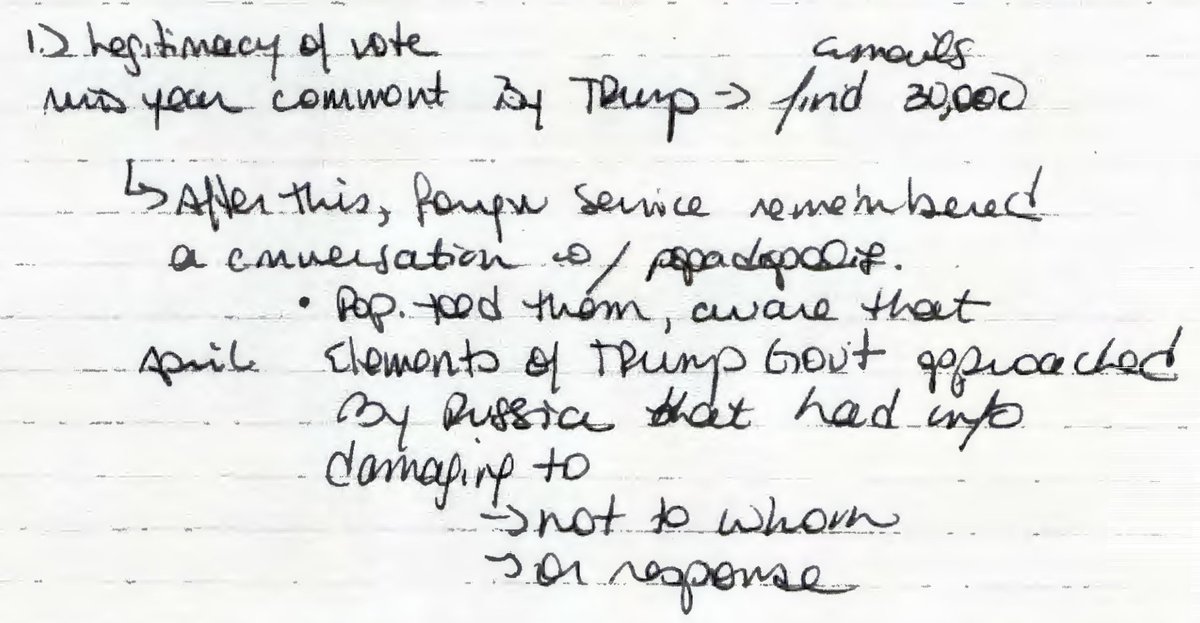 1.) Legitimacy of vote
mid year comment By Trump → find 30,000 emails
↳ After this, foreign service remembered
a conversation w/ papadopoulis.
• Pop. told them, aware that
April Elements of Trump Gov't approached
By Russia that had info
damaging to
→ not to whom
→ or response